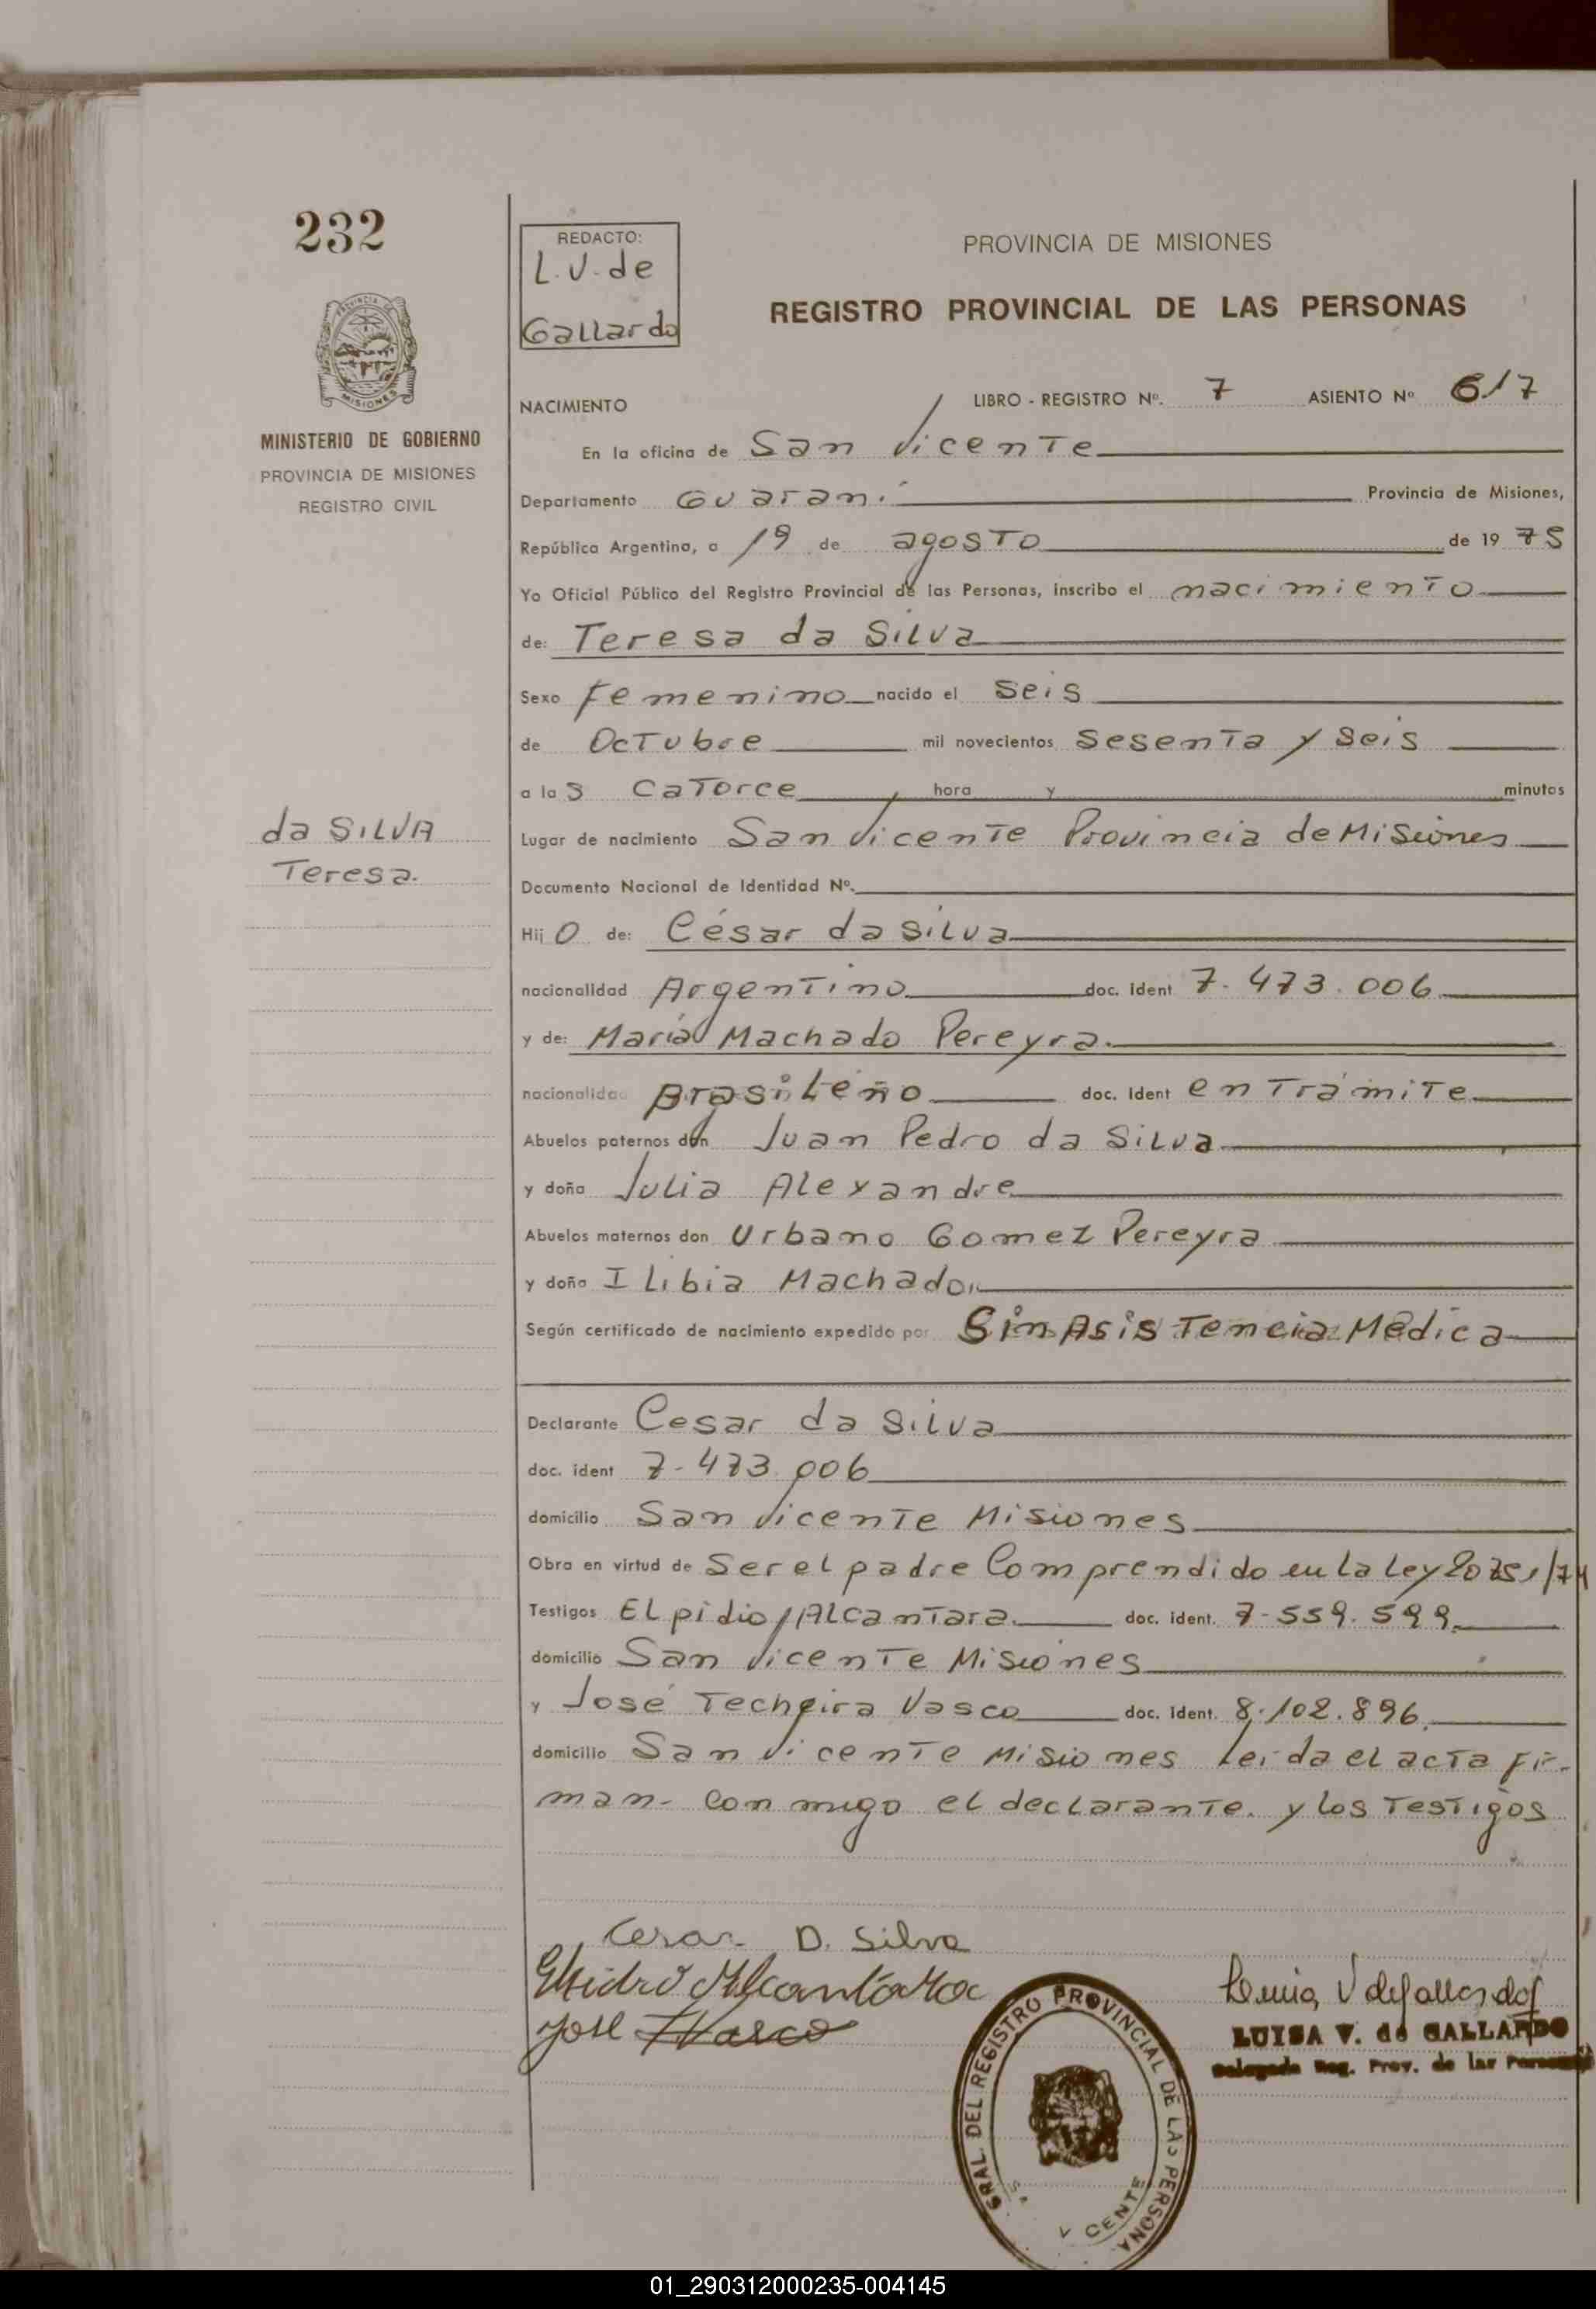 232
REDACTO:
L. V. de
Gallardo
PROVINCIA DE MISIONES
REGISTRO PROVINCIAL DE LAS PERSONAS
PROVINCIA DE
MISIONES
MINISTERIO DE GOBIERNO
PROVINCIA DE MISIONES
REGISTRO CIVIL
NACIMIENTO LIBRO - REGISTRO Nº. 7 ASIENTO Nº 617
En la oficina de San Vicente
Departamento Guaraní Provincia de Misiones,
República Argentina, a 19 de agosto de 19 75
Yo Oficial Público del Registro Provincial de las Personas, inscribo el nacimiento
de: Teresa da Silva
Sexo femenino nacido el seis
de Octubre mil novecientos sesenta y seis
a las catorce hora y minutos
da SILVA
Teresa.
Lugar de nacimiento San Vicente Provincia de Misiones
Documento Nacional de Identidad Nº.
Hijo de: César da Silva
nacionalidad Argentino doc. ident 7.473.006
y de: María Machado Pereyra.
nacionalidad Brasileño doc. ident en Trámite
Abuelos paternos don Juan Pedro da Silva
y doña Julia Alexandre
Abuelos maternos don Urbano Gomez Pereyra
y doña Ilibia Machado
Según certificado de nacimiento expedido por Sin Asistencia Médica
Declarante Cesar da Silva
doc. ident 7-473.006
domicilio San Vicente Misiones
Obra en virtud de Ser el padre Comprendido en la Ley 20751/74
Testigos Elpidio Alcantara. doc. ident. 7-559.599.
domicilio San Vicente Misiones
y José Techeira Vasco doc. ident. 8.102.896.
domicilio San Vicente Misiones Leída el acta fir-
man conmigo el declarante y los Testigos
Cesar D. Silva
Elpidio Alcantara
José T Vasco
Luisa V de Gallardo
LUISA V. de GALLARDO
Delegada Reg. Prov. de las Personas
GRAL. DEL REGISTRO PROVINCIAL DE LAS PERSONA
V CENTE
01_290312000235-004145